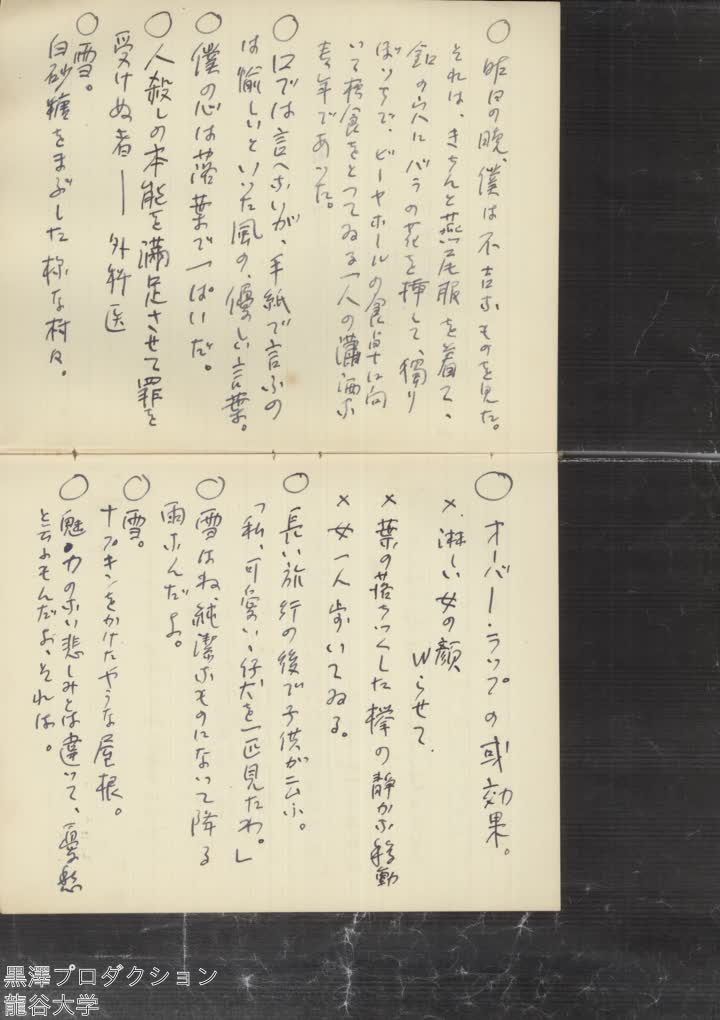 ○ 昨日の晩、僕は不吉なものを見た。
それは、きちんと燕尾服を着て、
釦の穴にバラの花を挿して、獨り
ぼっちで、ビーヤホールの食卓に向
いて夜食をとってゐる一人の瀟洒な
青年であった。
○ 口では言へないが、手紙で言ふの
は愉しいといった風の、優しい言葉。
○ 僕の心は落葉で一ぱいだ。
○ 人殺しの本能を満足させて罪を
受けぬ者 ― 外科医
○ 雪。
白砂糖をまぶした様な村々。
○ オーバー・ラップの或効果。
× 淋しい女の顔
Wらせて
× 葉の落ちつくした欅の静かな移動
× 女一人歩いてゐる。
○ 長い旅行の後で子供が云ふ。
「私、可愛いい仔犬を一匹見たわ。」
○ 雪はね、純潔なものになって降る
雨なんだよ。
○ 雪。
ナプキンをかけたやうな屋根。
○ 魅力のない悲しみとは違って、憂愁
と云ふもんだよ、それは。
黒澤プロダクション
龍谷大学